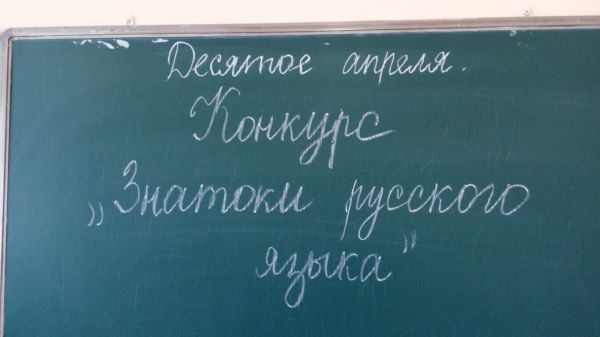 Десятое апреля.
Конкурс
„Знатоки русского
языка”